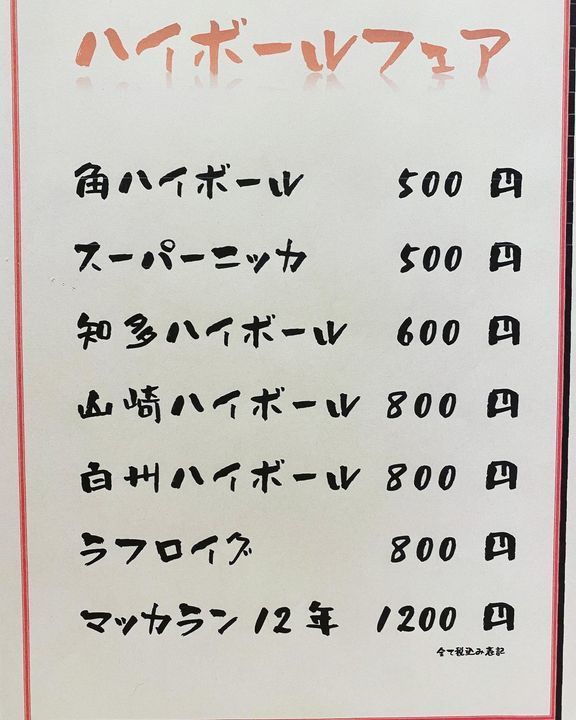 ハイボールフェア
角ハイボール 500 円
スーパーニッカ 500 円
知多ハイボール 600 円
山崎ハイボール 800 円
白州ハイボール 800 円
ラフロイグ 800 円
マッカラン12年 1200 円
全て税込み表記